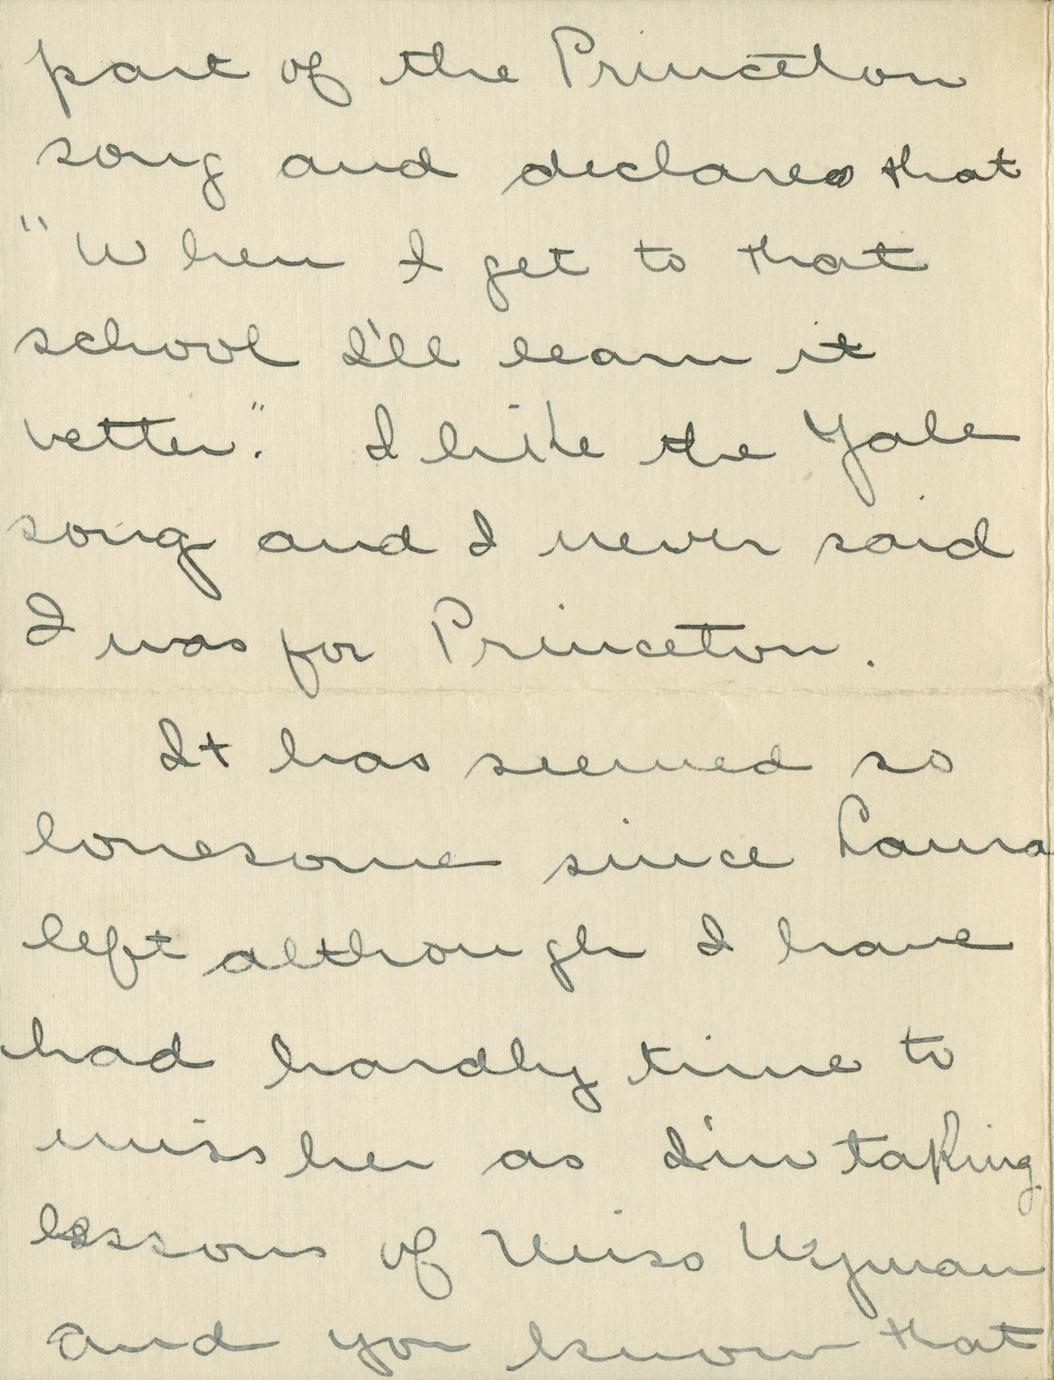 part of the Princeton
song and declares that
"When I get to that
school I'll learn it
better." I like the Yale
song and I never said
I was for Princeton.
It has seemed so
lonesome since Laura
left although I have
had hardly time to
miss her as I'm taking
lessons of Miss Wyman
and you know that